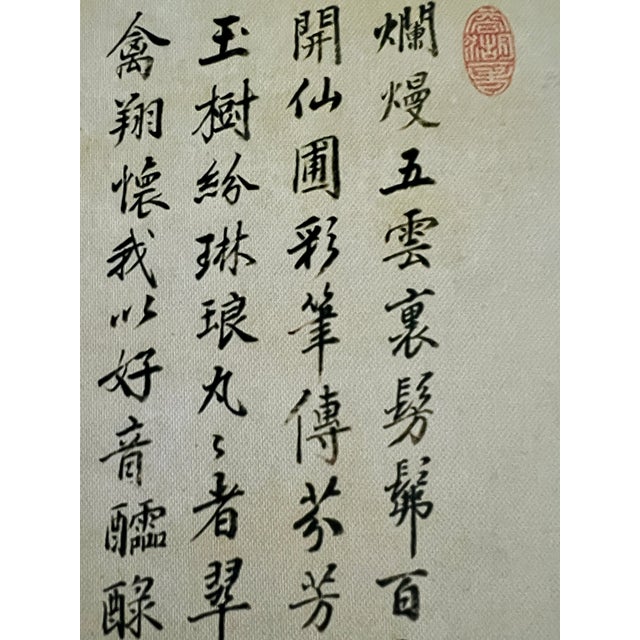 爛熳五雲裏髣髴百
開仙圃彩筆傳芬芳
玉樹紛琳琅丸〻者翠
禽翔懷我以好音醽醁